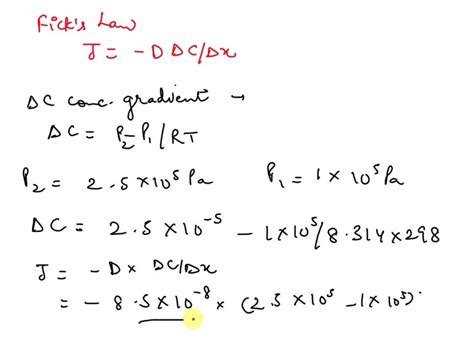 Fick's Law
J = -D ΔC/Δx
ΔC conc. gradient →
ΔC = P₂-P₁/RT
P₂ = 2.5×10⁵ Pa P₁ = 1 × 10⁵ Pa
ΔC = 2.5×10⁻⁵ - 1×10⁵/8.314×298
J = -D× ΔC/Δx
= - 8.5×10⁻⁸ × (2.5 ×10⁵ -1×10⁵).